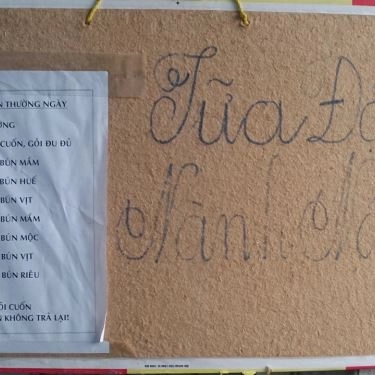 N THƯỜNG NGÀY
ƠNG
CUỐN, GỎI ĐU ĐỦ
BÚN MẮM
BÚN HUẾ
BÚN VỊT
BÚN MẮM
BÚN MỘC
BÚN VỊT
BÚN RIÊU
ỎI CUỐN
N KHÔNG TRẢ LẠI!
Tữa Đậ
Nành N